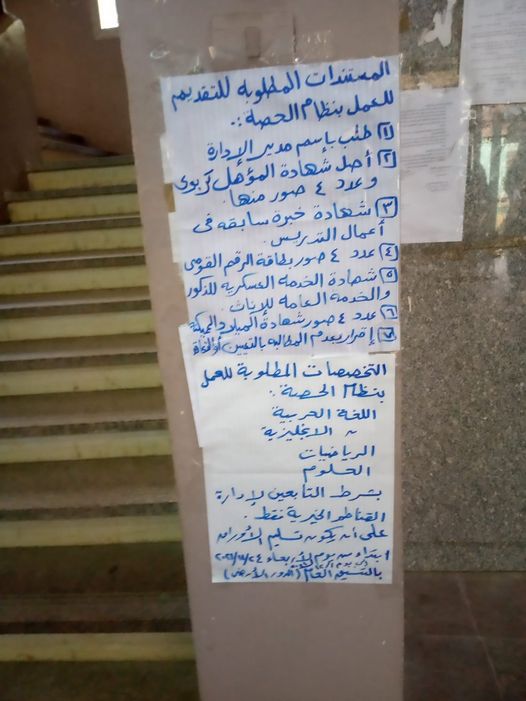 المستندات المطلوبه للتقديم
للعمل بنظام الحصة :.
١ طلب بإسم مدير الإدارة
٢ أصل شهادة المؤهل تربوى
وعدد ٤ صور منها.
٣ شهادة خبرة سابقه فى
أعمال التدريس.
٤ عدد ٤ صور بطاقة الرقم القومى
٥ شهادة الخدمه العسكرية للذكور
والخدمه العامه للإناث
٦ عدد ٤ صور شهادة الميلاد
٧ إقرار بعدم المطالبه بالتعيين أو
التخصصات المطلوبة للعمل
بنظام الحصة :.
اللغة العربية
〃 الانجليزية
الرياضيات
العلوم
بشرط التابعين لإدارة
القناطر الخيرية فقط.
على أن يكون تسليم الأوراق
ابتداء من يوم الأربعاء
بالتنسيق العام (الدور الأرضى)